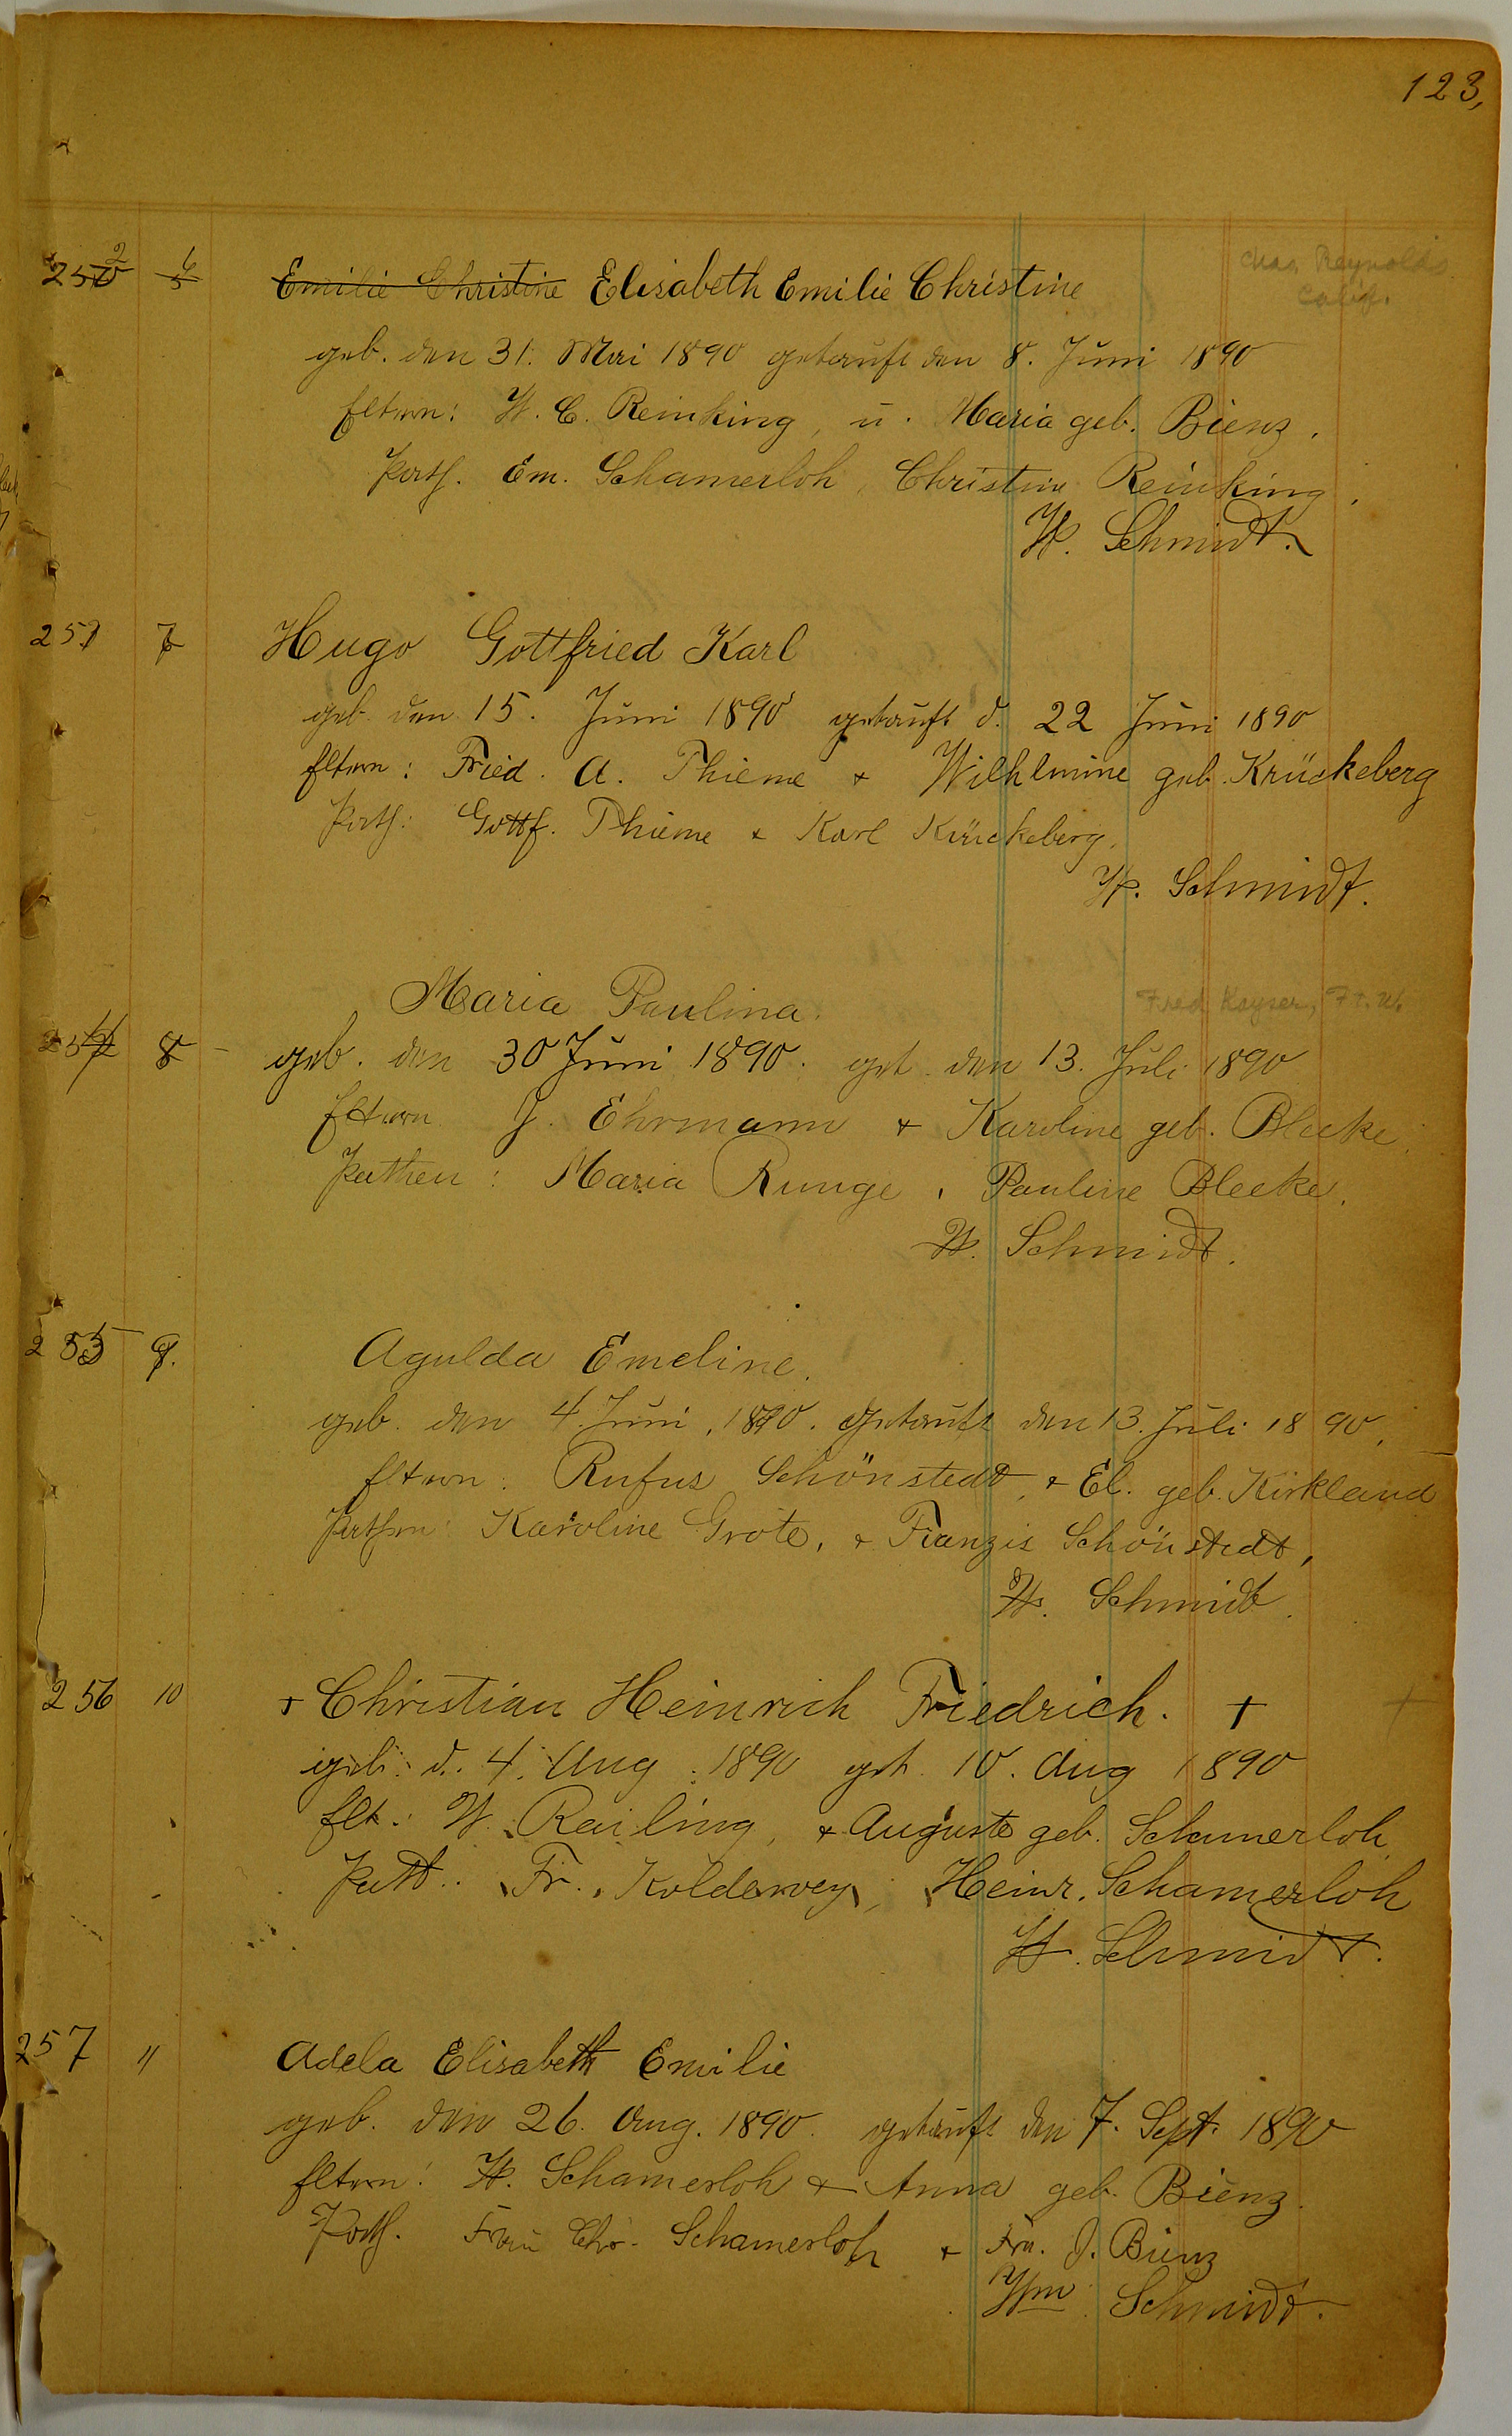 123,
252 6 Emilie Christine Elisabeth Emilie Christine
Chas Reynolds
Calif.
geb. den 31. Mai 1890 getauft den 8. Juni 1890
Eltern: W. C. Reinking, u. Maria geb. Bienz.
Path. Em. Schamerloh, Christine Reinking.
W. Schmidt.
7 Hugo Gottfried Karl
geb. den 15. Juni 1890 getauft d. 22 Juni 1890
Eltern: Fried. A. Thieme + Wilhlmine geb. Krückeberg
Path: Gottf. Thieme + Karl Krückeberg.
W. Schmidt.
Maria Paulina.
Fred Kayser, Ft. W.
254 8 geb. den 30 Juni 1890. get. den 13. Juli 1890
Eltern J. Ehrmann + Karoline geb. Bleeke.
Pathen: Maria Runge, Pauline Bleeke.
W. Schmidt.
255 9. Agulda Emeline.
geb. den 4. Juni, 1890. getauft den 13. Juli 1890.
Eltern: Rufus Schönstedt, + El. geb. Kirkland
Pathen: Karoline Grote, + Franzis Schönstedt,
W. Schmidt.
256 10 + Christian Heinrich Friedrich. + +
geb. d. 4. Aug. 1890 get. 10. Aug 1890
Elt.: W. Railing, + Auguste geb. Schamerloh
Patt.. Fr. Koldewey, Heinr. Schamerloh
W. Schmidt.
257 11 Adela Elisabeth Emilie
geb. den 26. Aug. 1890. getauft den 7. Sept. 1890
Eltern: W. Schamerloh + Anna geb. Bienz.
Path. Frau Chr. Schamerloh + Fra. J. Bienz
Wm Schmidt.